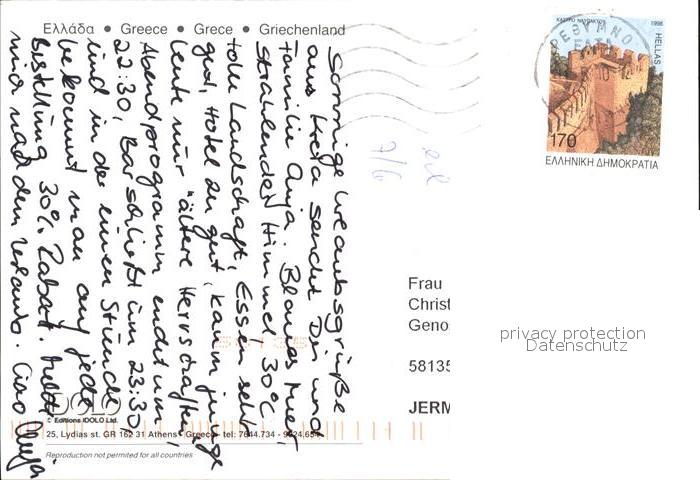 Ελλάδα • Greece • Grece • Griechenland
Sonnige Urlaubsgrüße
aus Kreta sendet Dir und
Familie Anja. Blaues Meer,
strahlender Himmel, 30°C,
tolle Landschaft, Essen sehr
gut, Hotel zu gut, kaum junge
Leute nur "ältere Herrschaften",
Abendprogramm endet um
22:30, Bar schließt um 23:30,
und in der einen Stunde
bekommt man auf jede
Bestellung 30% Rabatt. Melde
mich nach dem Urlaub. Ciao Anja
7/6
ΚΑΣΤΡΟ ΝΑΥΠΑΚΤΟΥ 1998
HELLAS
ΡΕΘΥΜΝΟ
170
ΕΛΛΗΝΙΚΗ ΔΗΜΟΚΡΑΤΙΑ
Frau
Christ
Geno
58135
JERM
privacy protection
Datenschutz
IDOLO
© Editions IDOLO Ltd.
25, Lydias st. GR 162 31 Athens - Greece - tel: 7644.734 - 9524.654
Reproduction not permited for all countries